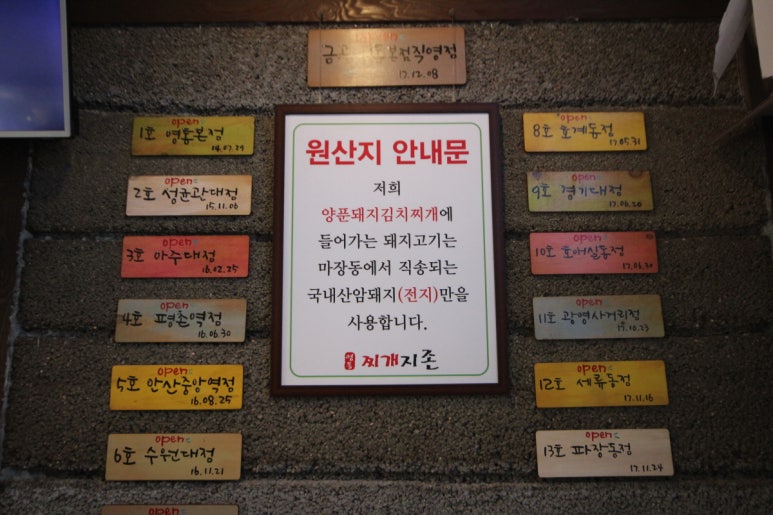 직영점
17.12.08
open
1호 영통본점
14.07.29
open
2호 성균관대점
15.11.06
open
3호 아주대점
16.02.25
open
4호 평촌역점
16.06.30
open
5호 안산중앙역점
16.08.25
open
6호 수원대점
16.11.21
open
원산지 안내문
저희
양푼돼지김치찌개에
들어가는 돼지고기는
마장동에서 직송되는
국내산암돼지(전지)만을
사용합니다.
찌개지존
open
8호 호계동점
17.05.31
open
9호 경기대점
17.06.20
open
10호 호매실동점
17.06.30
open
11호 광명사거리점
17.10.23
open
12호 세류동점
17.11.16
open
13호 파장동점
17.11.24